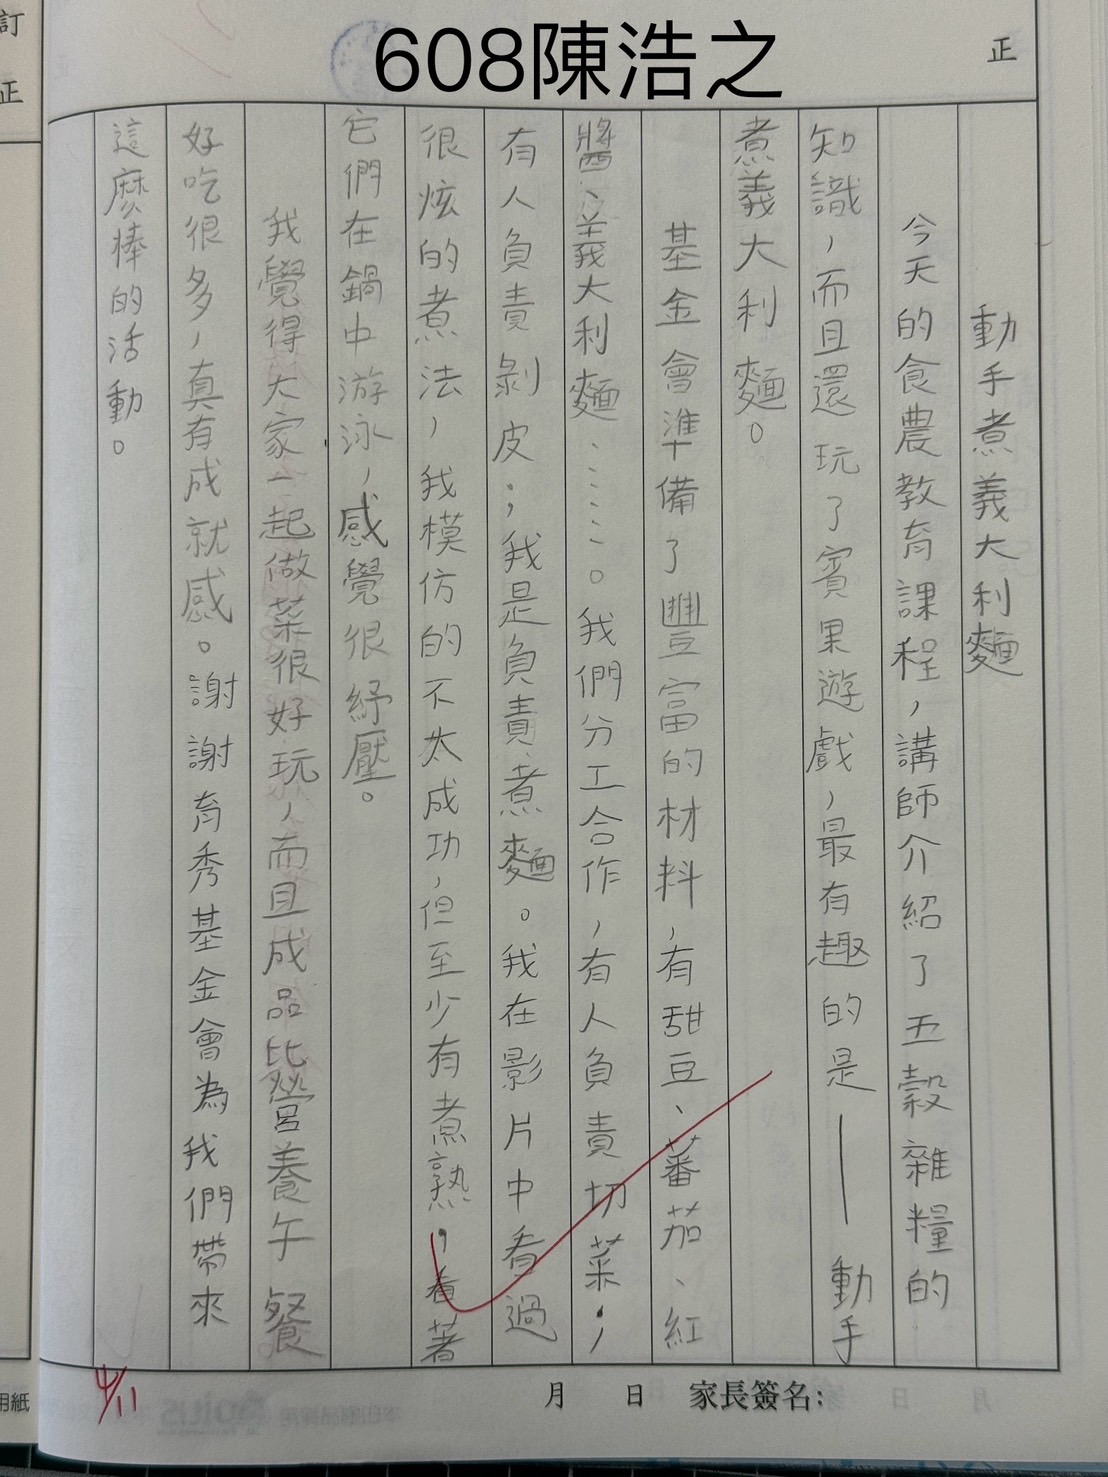 608陳浩之
訂正
正
動手煮義大利麵
今天的食農教育課程，講師介紹了五穀雜糧的
知識，而且還玩了賓果遊戲，最有趣的是——動手
煮義大利麵。
基金會準備了豐富的材料，有甜豆、蕃茄、紅
醬、義大利麵……。我們分工合作，有人負責切菜；
有人負責剝皮；我是負責煮麵。我在影片中看過
很炫的煮法，我模仿的不太成功，但至少有煮熟，看著
它們在鍋中游泳，感覺很紓壓。
我覺得大家一起做菜很好玩，而且成品比營養午餐
好吃很多，真有成就感。謝謝育秀基金會為我們帶來
這麼棒的活動。
月 日 家長簽名:
4/11
用紙